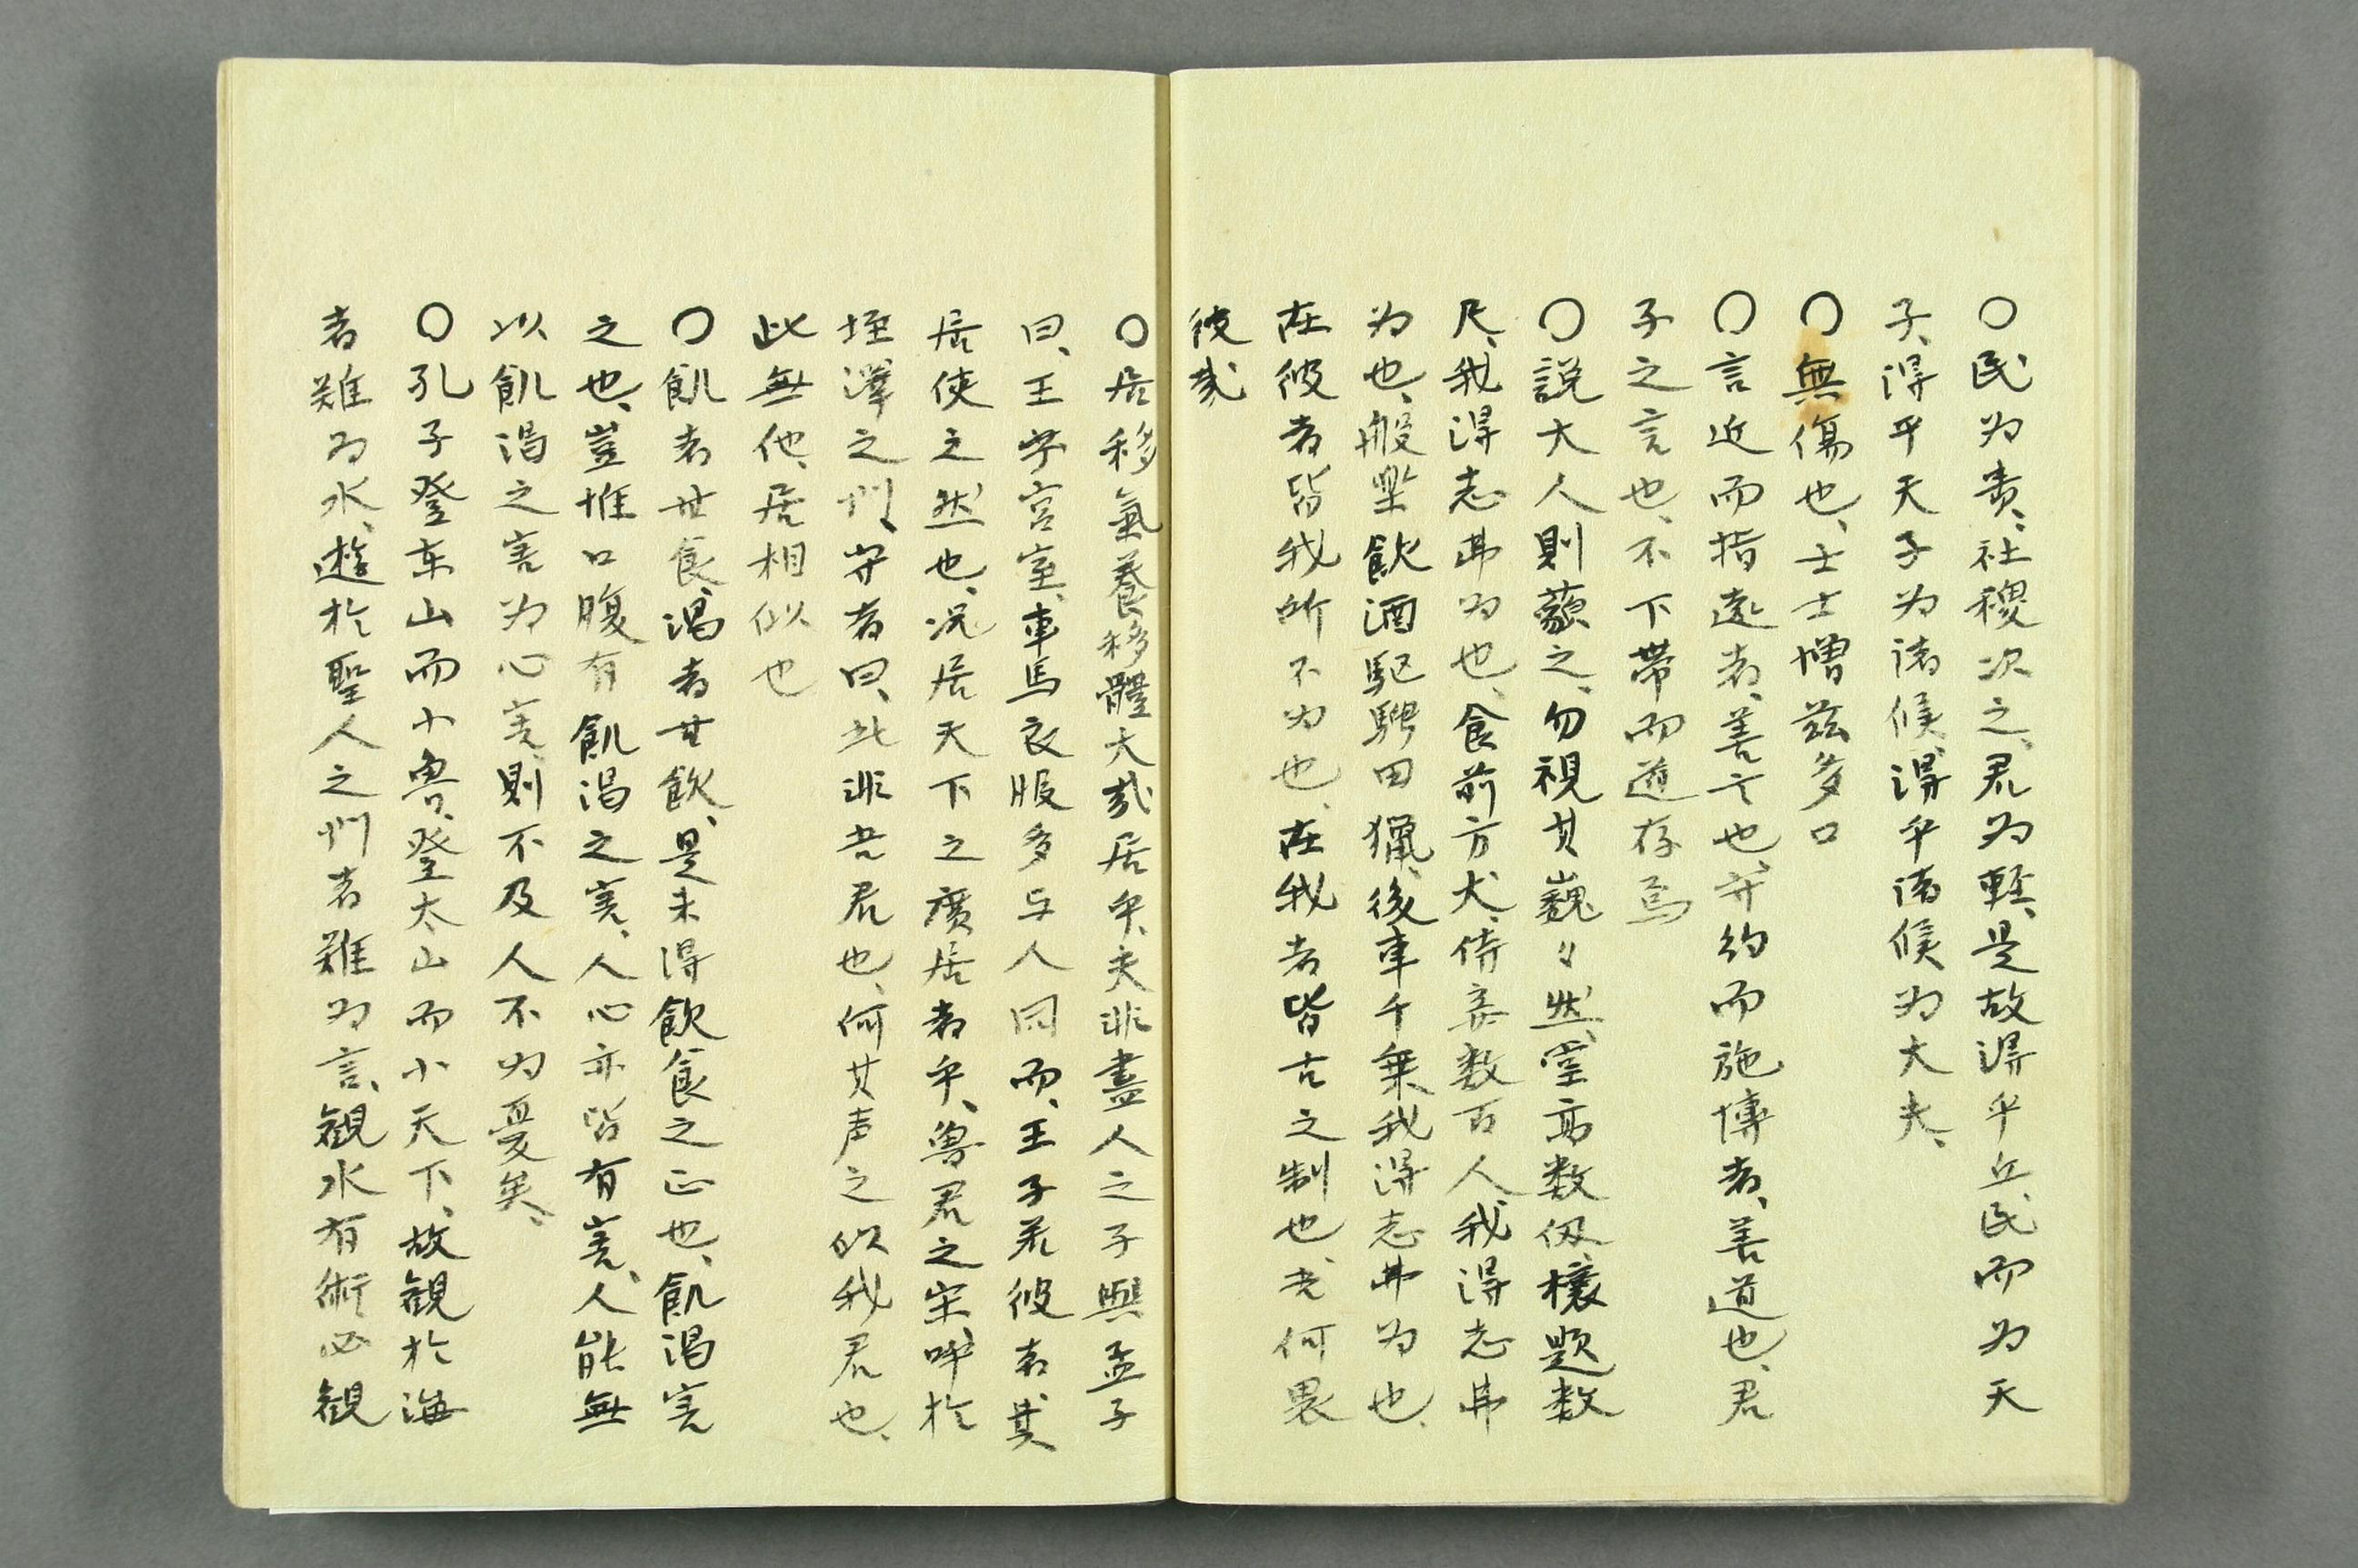 〇民为貴、社稷次之、君为軽、是故得乎丘民而为天
子、得乎天子为诸侯、得乎诸侯为大夫、
〇無傷也、士士憎茲多口
〇言近而指遠者、善言也、守約而施博者、善道也、君
子之言也、不下帯而道存焉
〇説大人則藐之、勿視其巍々然、堂高数仭榱題数
尺、我得志弗为也、食前方丈、侍妾数百人、我得志弗
为也、般楽飲酒駆騁田獵、後車千乗我得志弗为也、
在彼者皆我所不为也、在我者皆古之制也、吾何畏
彼哉
〇居移氣養移體大哉居乎、夫非盡人之子與孟子
曰、王子宮室、車馬衣服多与人同而、王子若彼者其
居使之然也、况居天下之廣居者乎、魯君之宋、呼於
垤澤之门、守者曰、此非吾君也、何其声之似我君也、
此無他、居相似也
〇飢者甘食、渇者甘飲、是未得飲食之正也、飢渇害
之也、豈惟口腹有飢渇之害、人心亦皆有害、人能無
以飢渇之害为心害、則不及人不为憂矣、
〇孔子登东山而小魯、登太山而小天下、故観於海
者難为水、遊於聖人之门者難为言、観水有術必観